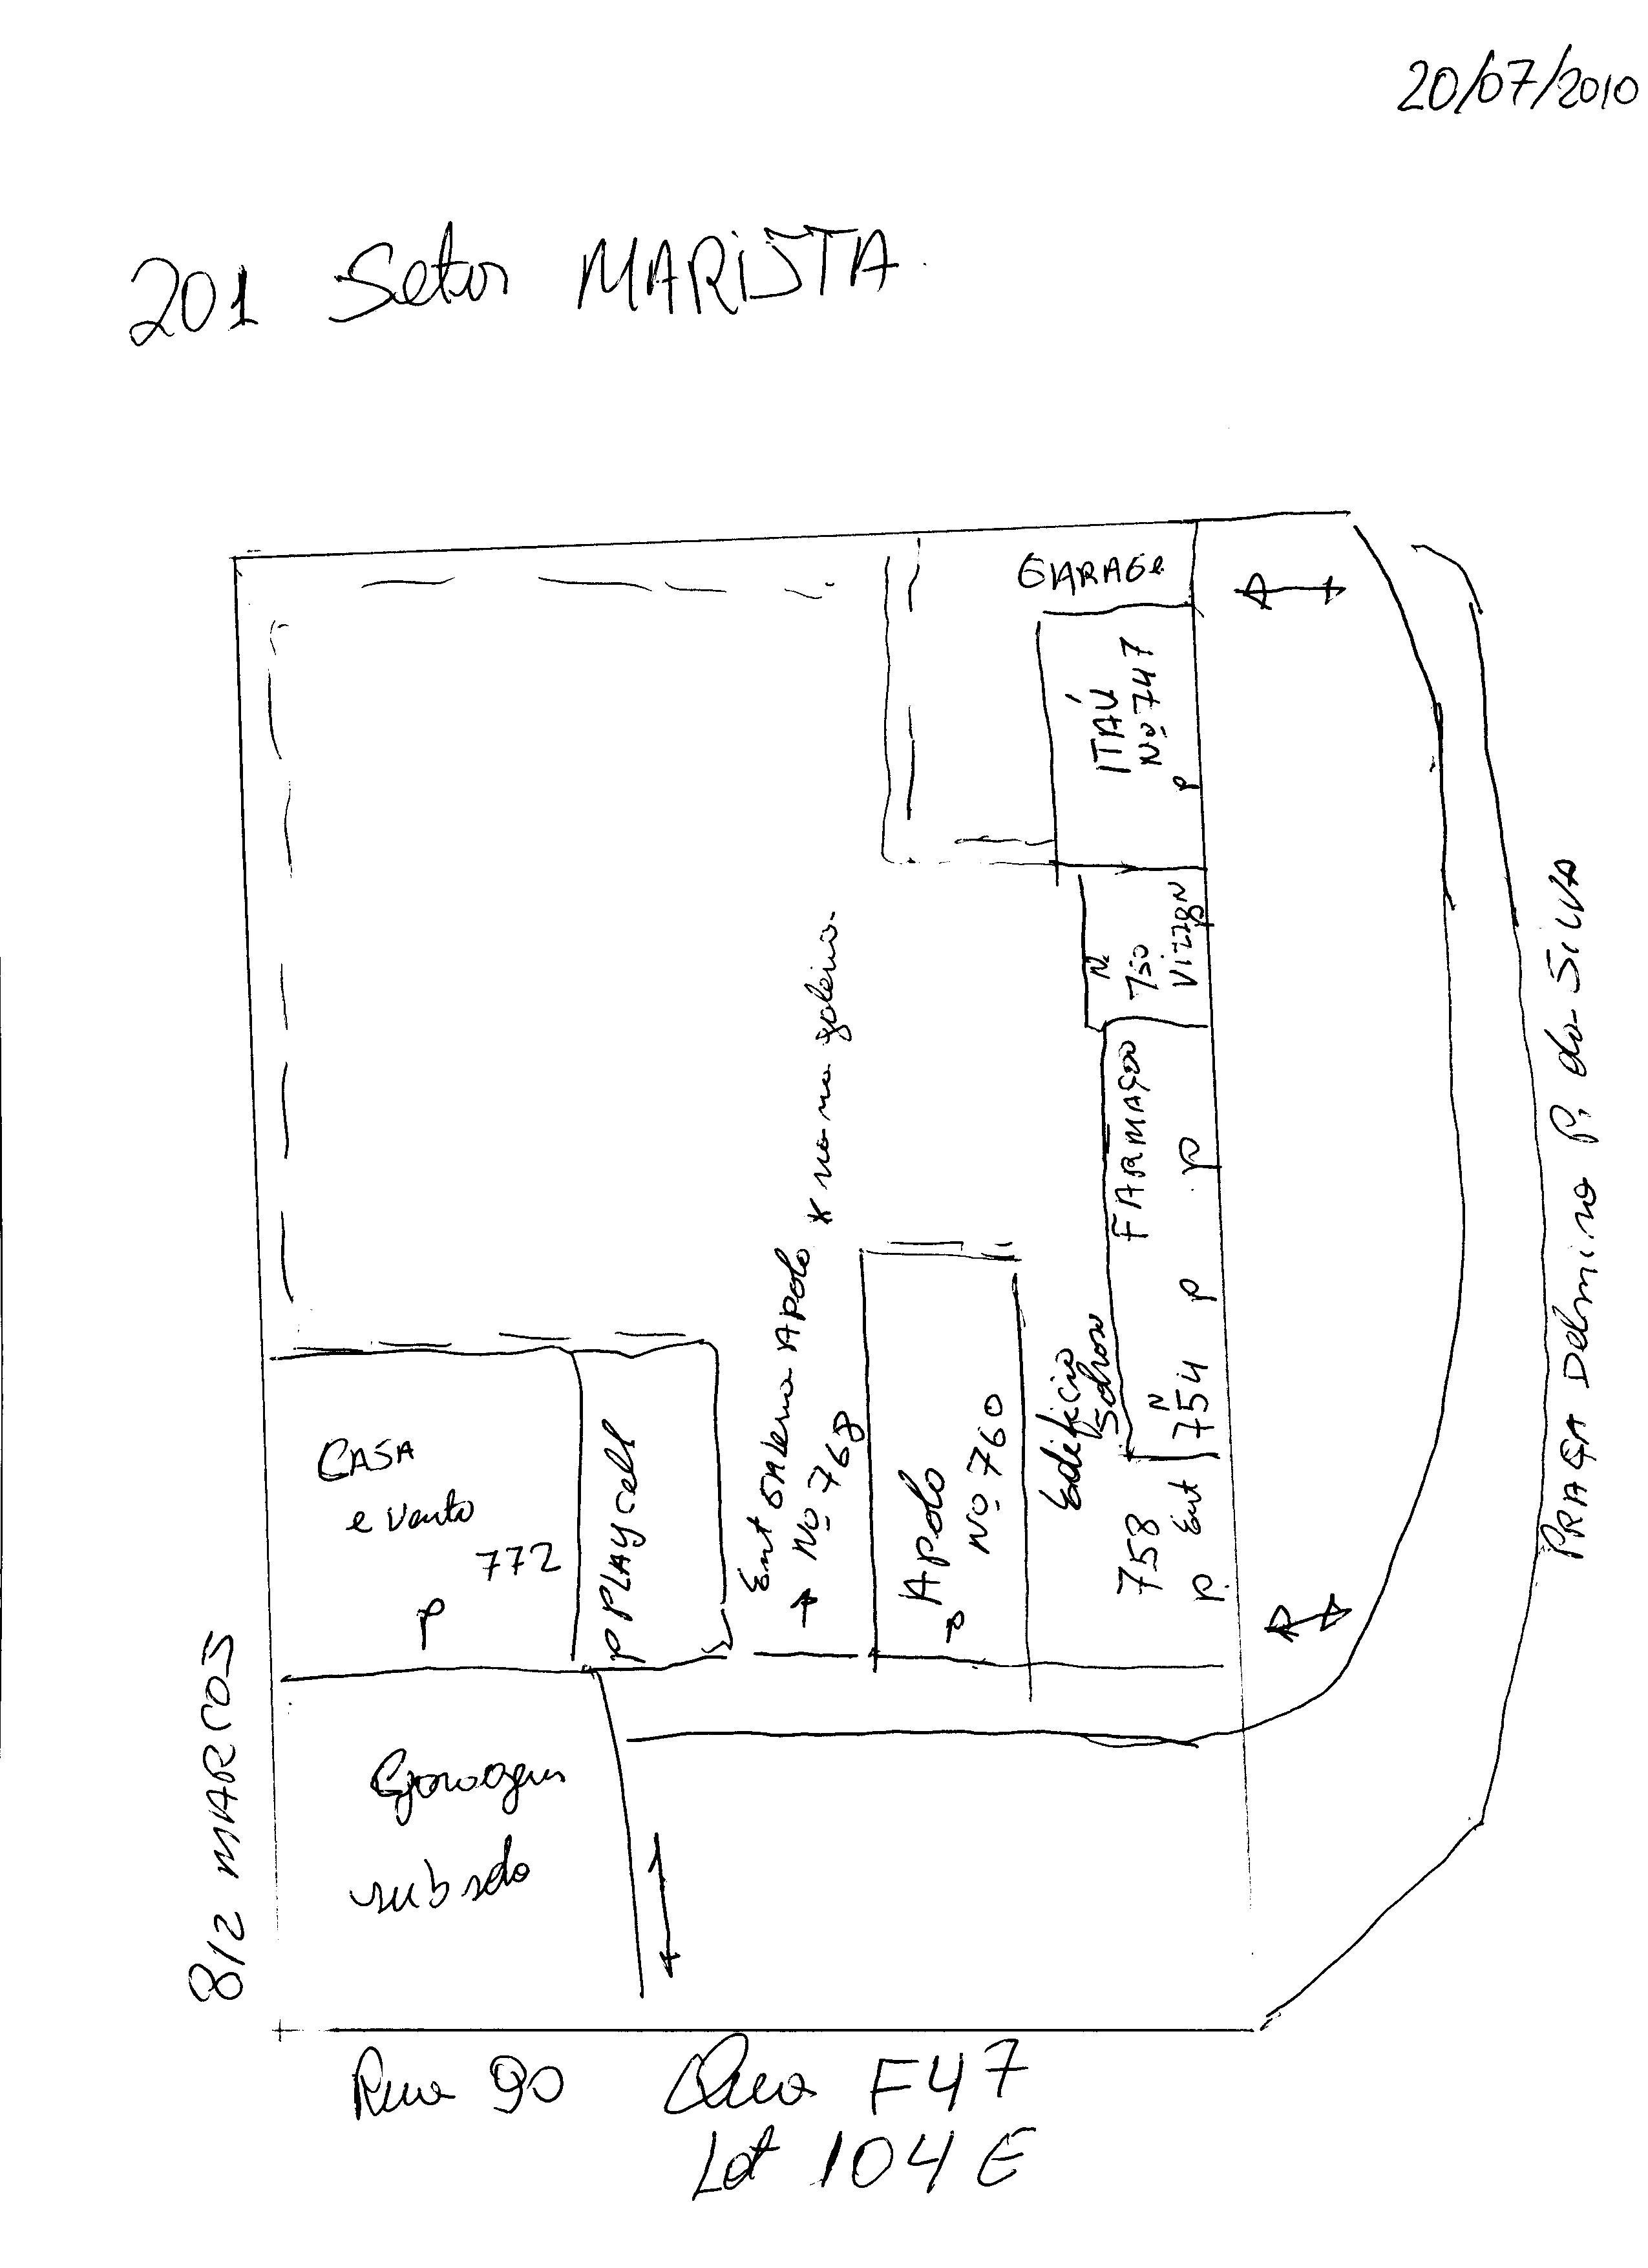 20/07/2010
201 Setor MARISTA
GARAGe
ITAÚ
Nº 747
P
N
750
VIZZON
P
FARMAÇÃO
P P
N
754
Edifício
758
Ent
P.
Ent GALeria APOLO * na galeria
→ Nº 768
APOLO
Nº 760
P
PLAYcell
P
CASA
e Vento
772
P
812 MARCOS
Garagem
subsolo
PRAÇA Delmino P. da SILVA
Rua 90 Qua F47
Lot 104 E